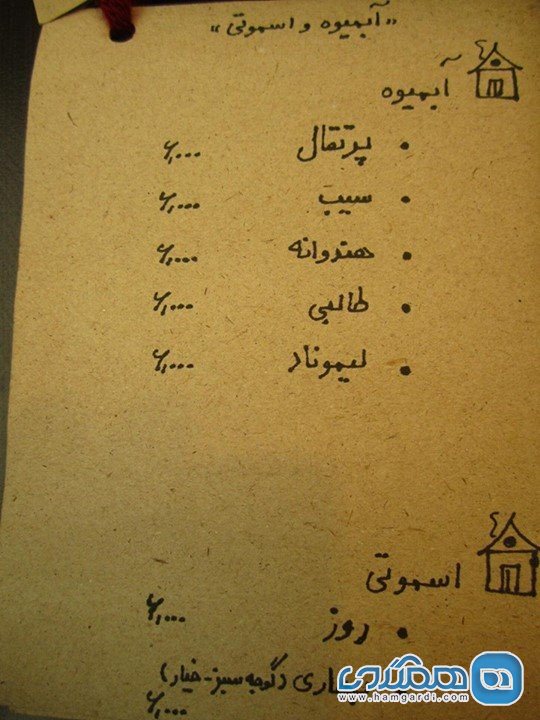 «آبمیوه و اسموتی»
آبمیوه
• پرتقال ۶,۰۰۰
• سیب ۶,۰۰۰
• هندوانه ۶,۰۰۰
• طالبی ۶,۰۰۰
• لیموناد ۶,۰۰۰
اسموتی
• روز ۶,۰۰۰
(گوجه سبز - خیار)
۶,۰۰۰
همگردی
www.hamgardi.com